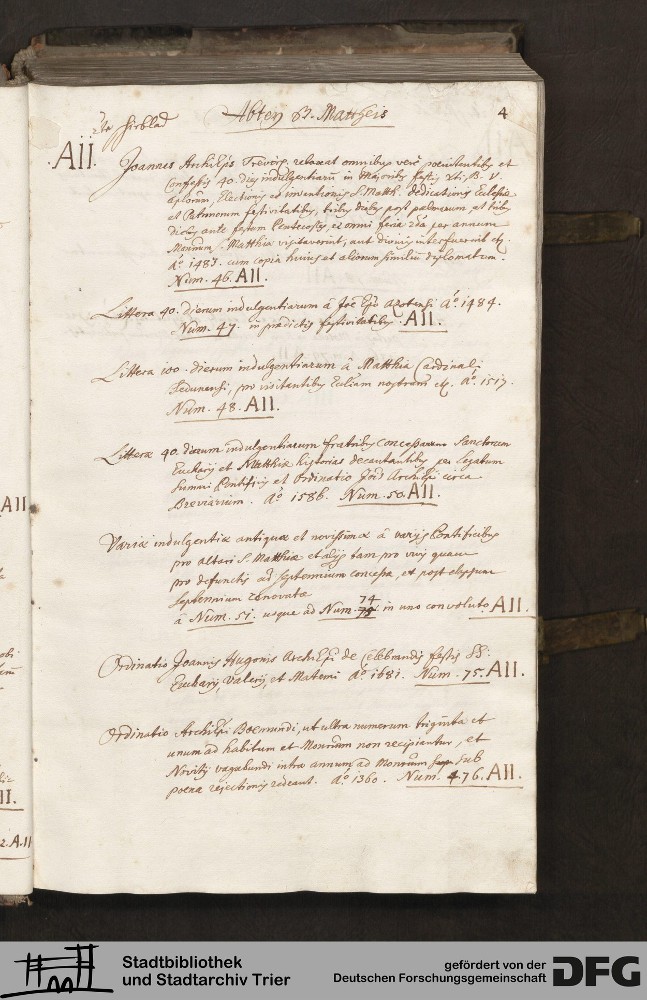 Abtey St. Mattheis
4
AII.
Joannes ArchiEps Trevirs. relaxat omnibus verè poenitentibs et
Confessis 40. dies indulgentiarũ in Majoribs festis Xti, B. V.
aplorum, Electionis et inventionis S. Matth. dedicationis Eclesiæ
et Patronorum festivitatibs, tribs diebs post palmarum et tribs
diebs ante festum Pentecostes et omni feria 2da per annum
Monrium S. Matthiæ visitaverint, aut divinis interfuerint
Aō. 1487. cum copia huius et aliorum similiũ diplomatum.
Num. 46. AII.
Littera 40. dierum indulgentiarum à Joe Epo Azotensi Aō. 1484.
Num. 47. in prædictis festivitatibs. AII.
Littera 100. dierum indulgentiarum à Matthia Cardinali
Sedunensi, pro visitantibs Ecliam nostram Aō. 1517.
Num. 48. AII.
Litteræ 40. dierum indulgentiarum fratribs Sanctorum
Eucharij et Matthiæ historias decantantibs per legatum
Summi Pontificis et ordinatio Archiepi circa
Breviarium. Aō 1586. Num. 50. AII.
Variæ indulgentiæ antiquæ et novissimæ à varijs Pontificibus
pro altari S. Matthiæ et alijs tam pro vivis quam
pro defunctis ad septennium concessæ, et post elapsum
septennium renovatæ
74
à Num. 51. usque ad Num. 75. in uno convoluto AII.
Ordinatio Joannis Hugonis ArchiEpi de Celebrandis festis SS:
Eucharij, Valerij, et Materni Aō 1681. Num. 75. AII.
Ordinatio ArchiEpi Boemundi, ut ultra numerum triginta et
unum ad habitum et Monrium non recipiantur, et
Novitij vagabundi intra annum ad Monrium sub
poena rejectionis redeant. Aō. 1360. Num. 76. AII.
AII
II.
2. A.II
Stadtbibliothek
und Stadtarchiv Trier
gefördert von der
Deutschen Forschungsgemeinschaft
DFG